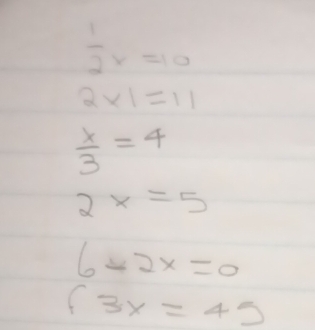 1/2 x = 10
2x1 = 11
x/3 = 4
2x = 5
6 - 2x = 0
3x = 45